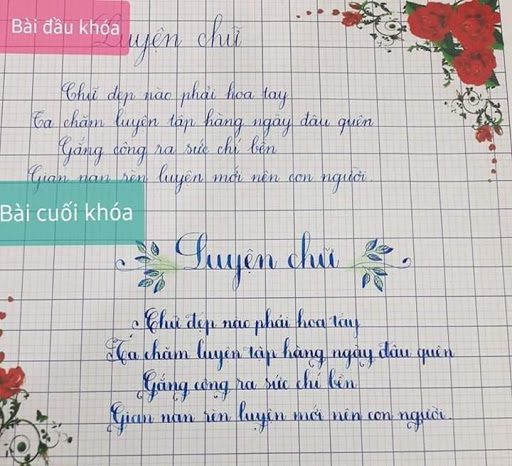 Bài đầu khóa
Luyện chữ
Chữ đẹp nào phải hoa tay
Ta chăm luyện tập hàng ngày đâu quên
Gắng công ra sức chí bền
Gian nan rèn luyện mới nên con người.
Bài cuối khóa
Luyện chữ
Chữ đẹp nào phải hoa tay
Ta chăm luyện tập hàng ngày đâu quên
Gắng công ra sức chí bền
Gian nan rèn luyện mới nên con người.